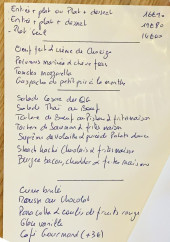 Entrée + plat ou Plat + dessert 16€90
Entrée + plat + dessert 19€80
- Plat seul 14€00
Bœuf fait à crème de Chorizo
Poivrons marinés à chèvre frais
Tomates mozzarella
Gaspacho de petit pois à la menthe
Salade César
Salade Thaï au Bœuf
Tartare de Bœuf au & frites maison
Tartare de Saumon & frites maison
Suprême de Volaille & purée de Patate douce
Steak haché Charolais & frites maison
Burger bacon, cheddar & frites maison
Crème brulé
Mousse au Chocolat
Panacotta & coulis de fruits rouge
Glace vanille
Café Gourmand (+3€)